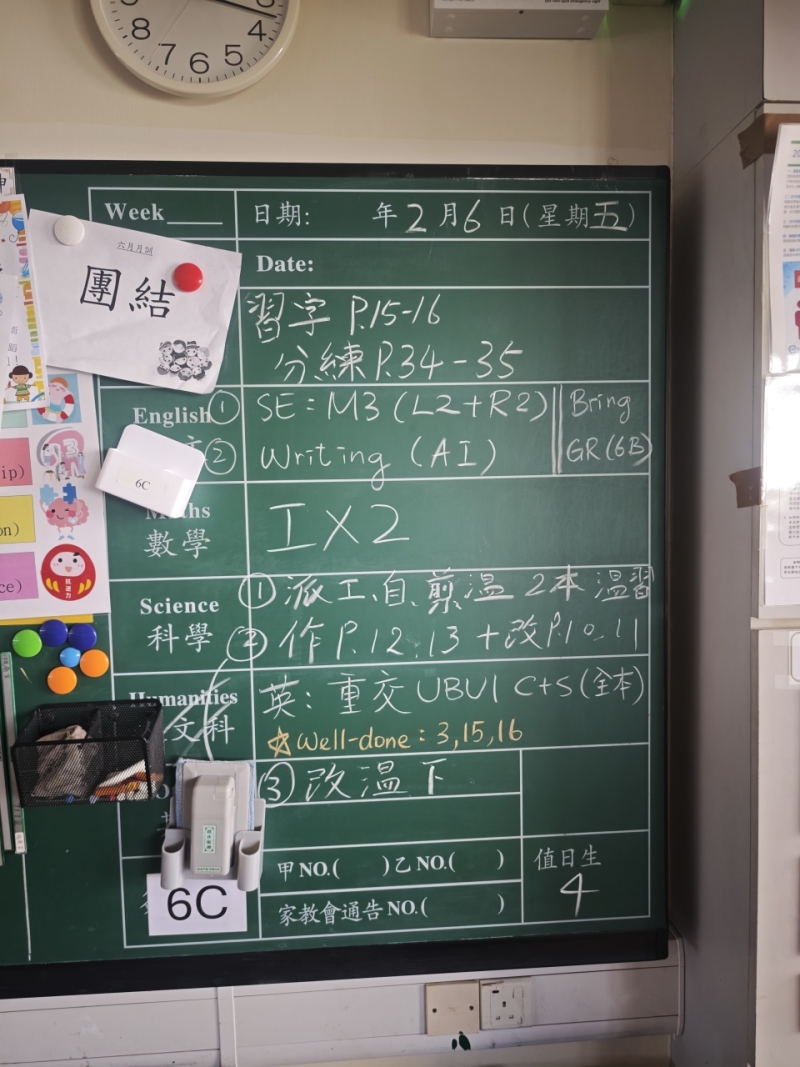 9 3
8 4
7 6 5
Week
日期: 年2月6日(星期五)
Date:
六月月訓
團結
習字 P.15-16
分練P.34-35
English ① SE: M3 (L2+R2) Bring
② Writing (AI) GR(6B)
6C
數學
工X2
Science
科學
① 派工、自、煎溫 2本 溫習
② 作P.12.13 +改P.10.11
Humanities
文科
英: 重交 UBUI C+S (全本)
☆ Well-done: 3,15,16
③ 改溫下
甲NO.( )乙NO.( )
家教會通告NO.( )
值日生
4
6C